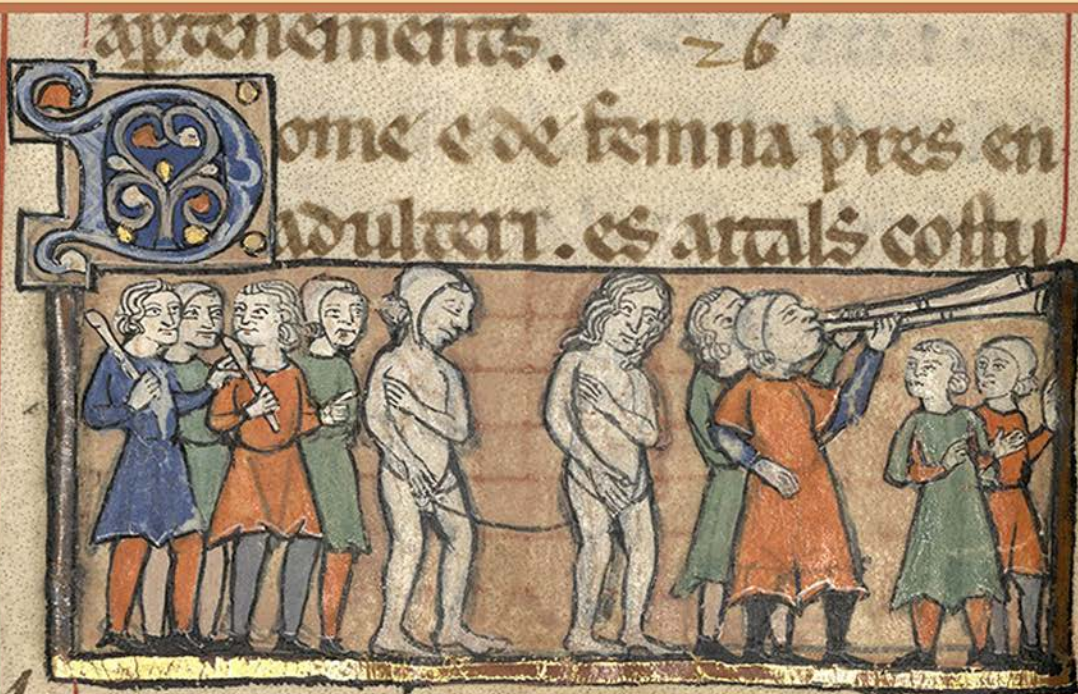 apꝑtenements. 26
Dome e de femna pres en
adulteri. es aitals costu